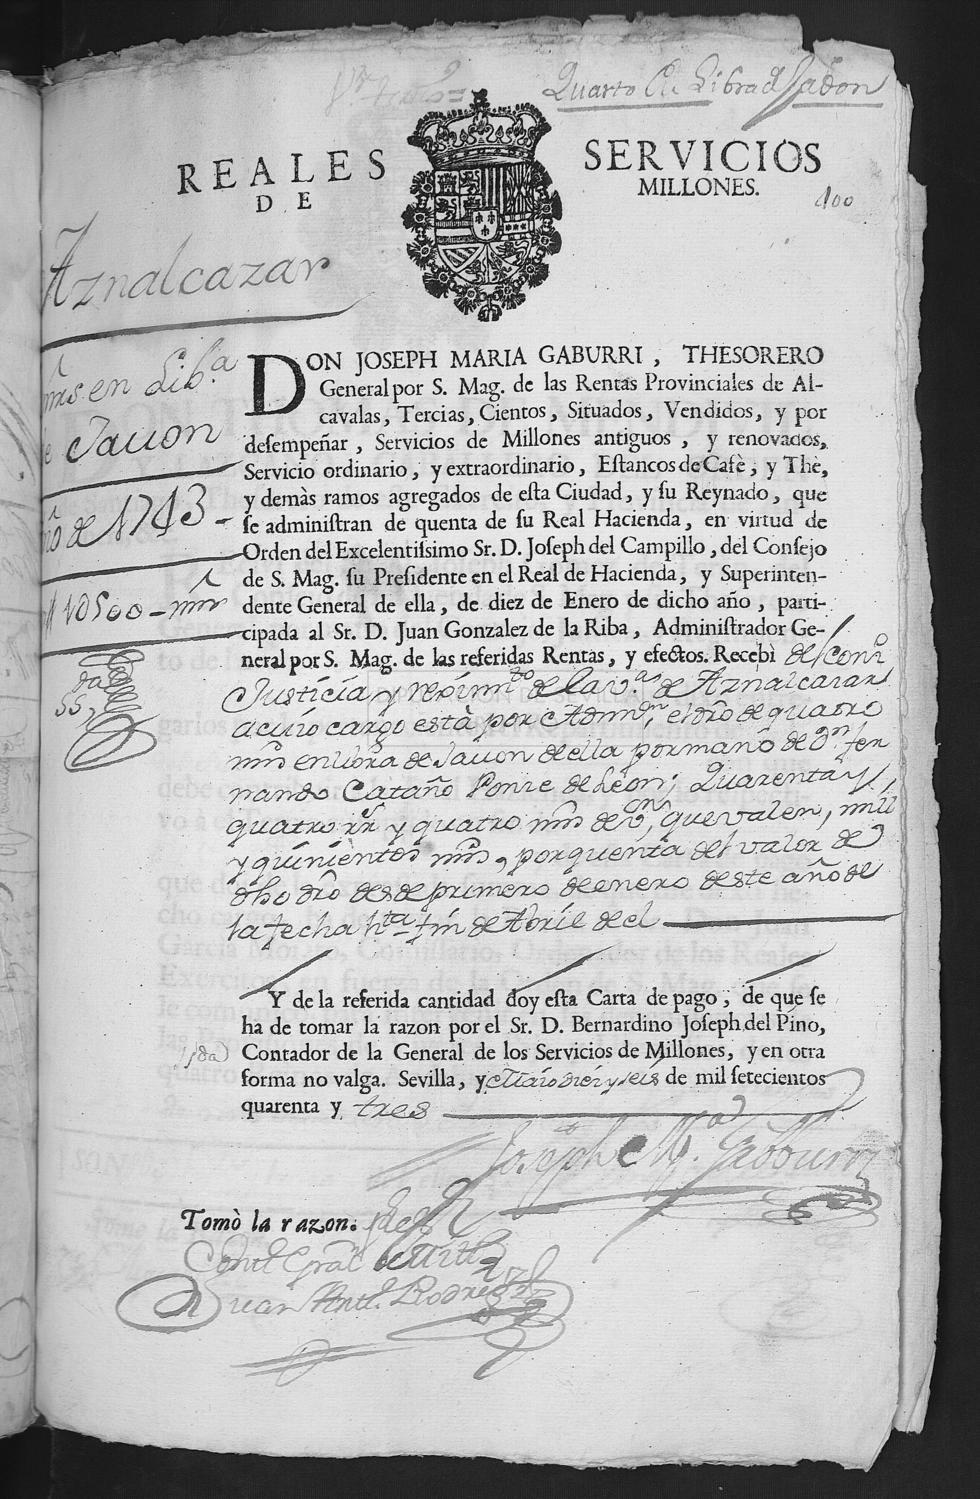 Quarto en Libra de Jabon
REALES SERVICIOS
DE MILLONES.
100
Aznalcazar
mrs en Lib.a
de Jauon
año de 1743
1 U 500 - mrs
DON JOSEPH MARIA GABURRI, THESORERO
General por S. Mag. de las Rentas Provinciales de Al-
cavalas, Tercias, Cientos, Situados, Vendidos, y por
desempeñar, Servicios de Millones antiguos, y renovados,
Servicio ordinario, y extraordinario, Estancos de Cafè, y Thè,
y demàs ramos agregados de esta Ciudad, y su Reynado, que
se administran de quenta de su Real Hacienda, en virtud de
Orden del Excelentissimo Sr. D. Joseph del Campillo, del Consejo
de S. Mag. su Presidente en el Real de Hacienda, y Superinten-
dente General de ella, de diez de Enero de dicho año, parti-
cipada al Sr. D. Juan Gonzalez de la Riba, Administrador Ge-
neral por S. Mag. de las referidas Rentas, y efectos. Recebì del conz.o
Justicia y reximto de la v.a de Aznalcazar
a cuio cargo està por Admon, el dro de quatro
mrs en libra de Jauon de ella por mano de Dn fer
nando Cataño Ponze de Leon; Quarenta y
quatro rs y quatro mrs de von, que valen, mill
y quinientos mrs, por quenta del valor de
dho dro desde primero de enero deste año de
la fecha hta fin de Abril de el
Y de la referida cantidad doy esta Carta de pago, de que se
ha de tomar la razon por el Sr. D. Bernardino Joseph del Pino,
Contador de la General de los Servicios de Millones, y en otra
forma no valga. Sevilla, y Maio diez y seis de mil setecientos
quarenta y tres
Joseph M.a Gabburri
Tomò la razon.
Contd Gral de Mill
Juan Antt.o Rodrez